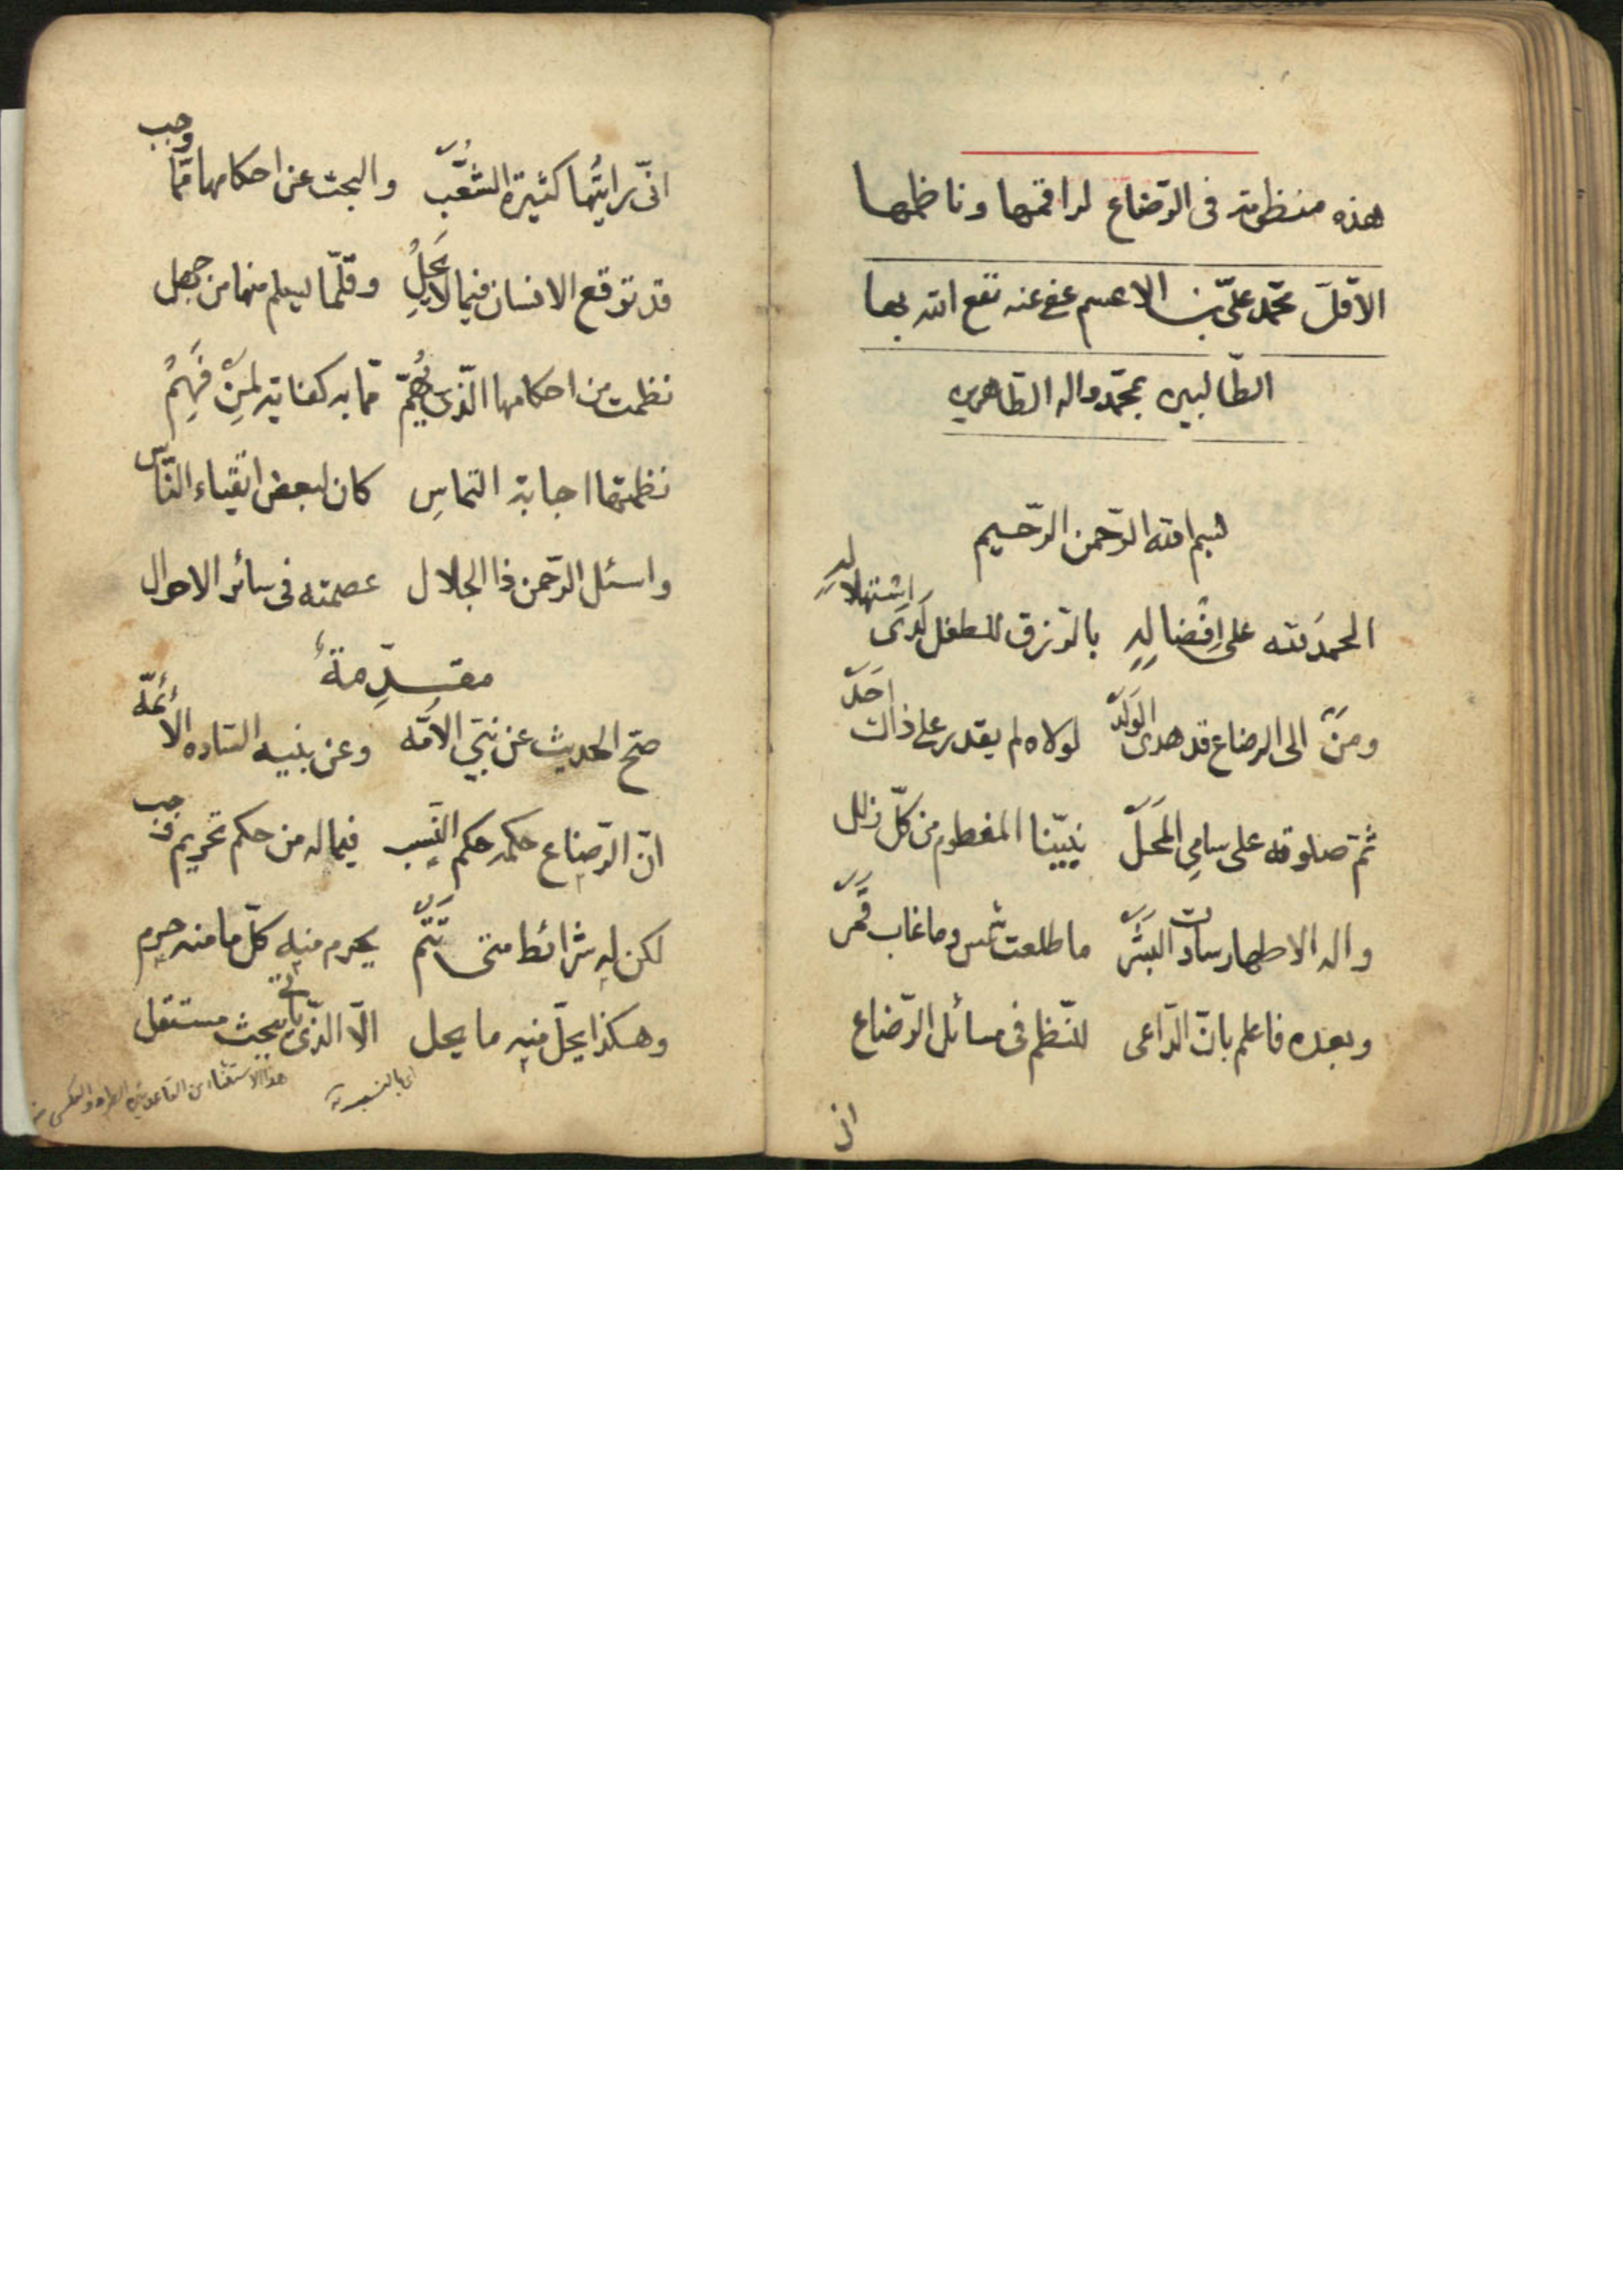 هذه منظومة فى الرّضاع لراقمها وناظمها
الاقلّ محمّد علىّ بن الاعسم عفى عنه نفع الله بها
الطّالبين بمحمّد واله الطّاهرين
بسم الله الرّحمن الرّحيم
الحمد لله على اِفضالِهِ بالرّزق للطفل لَدَى اسْتهلالِهِ
ومَنْ الى الرضاع قد هدى الوَلَدْ لولاه لم يقدر على ذاك اَحَدْ
ثمّ صلوة الله على سامِى المَحَلّ نبيّنا المفطوم من كلّ زلل
واله الاطهار سادات البَشَرْ ما طلعت شمس وما غاب قَمَرْ
وبعده فاعلم بانّ الدّاعى للنّظم فى مسائل الرّضاع
انّى
انّى رايتُها كثيرة الشُّعَبْ والبحث عن احكامها ممّا وجب
قد توقع الانسان فيما لا يَحِلُّ وقلّما يسلم منها من جهل
نظمت من احكامها الّذى يُهِمّ ممّا به كفاية لمَنْ فَهِمْ
نظمتها اجابة التماسِ كان لبعض اتقياء النّاس
واسئل الرّحمن ذا الجلال عصمته فى سائر الاحوال
مقدِّمةٌ
صحّ الحديث عن نبىّ الامّه وعن بنيه السّاده الأئمّه
انّ الرّضاع حكمه حكم النّسب فيما له من حكم تحريم وجب
لكن له شرائط متى تَتِمّ يحرم منه كلّ ما منه حرم
وهكذا يحلّ منه ما يحل الّا الّذى ياتى ببحث مستقل
هذا الاستثناء من القاعدتين الطرد والعكس